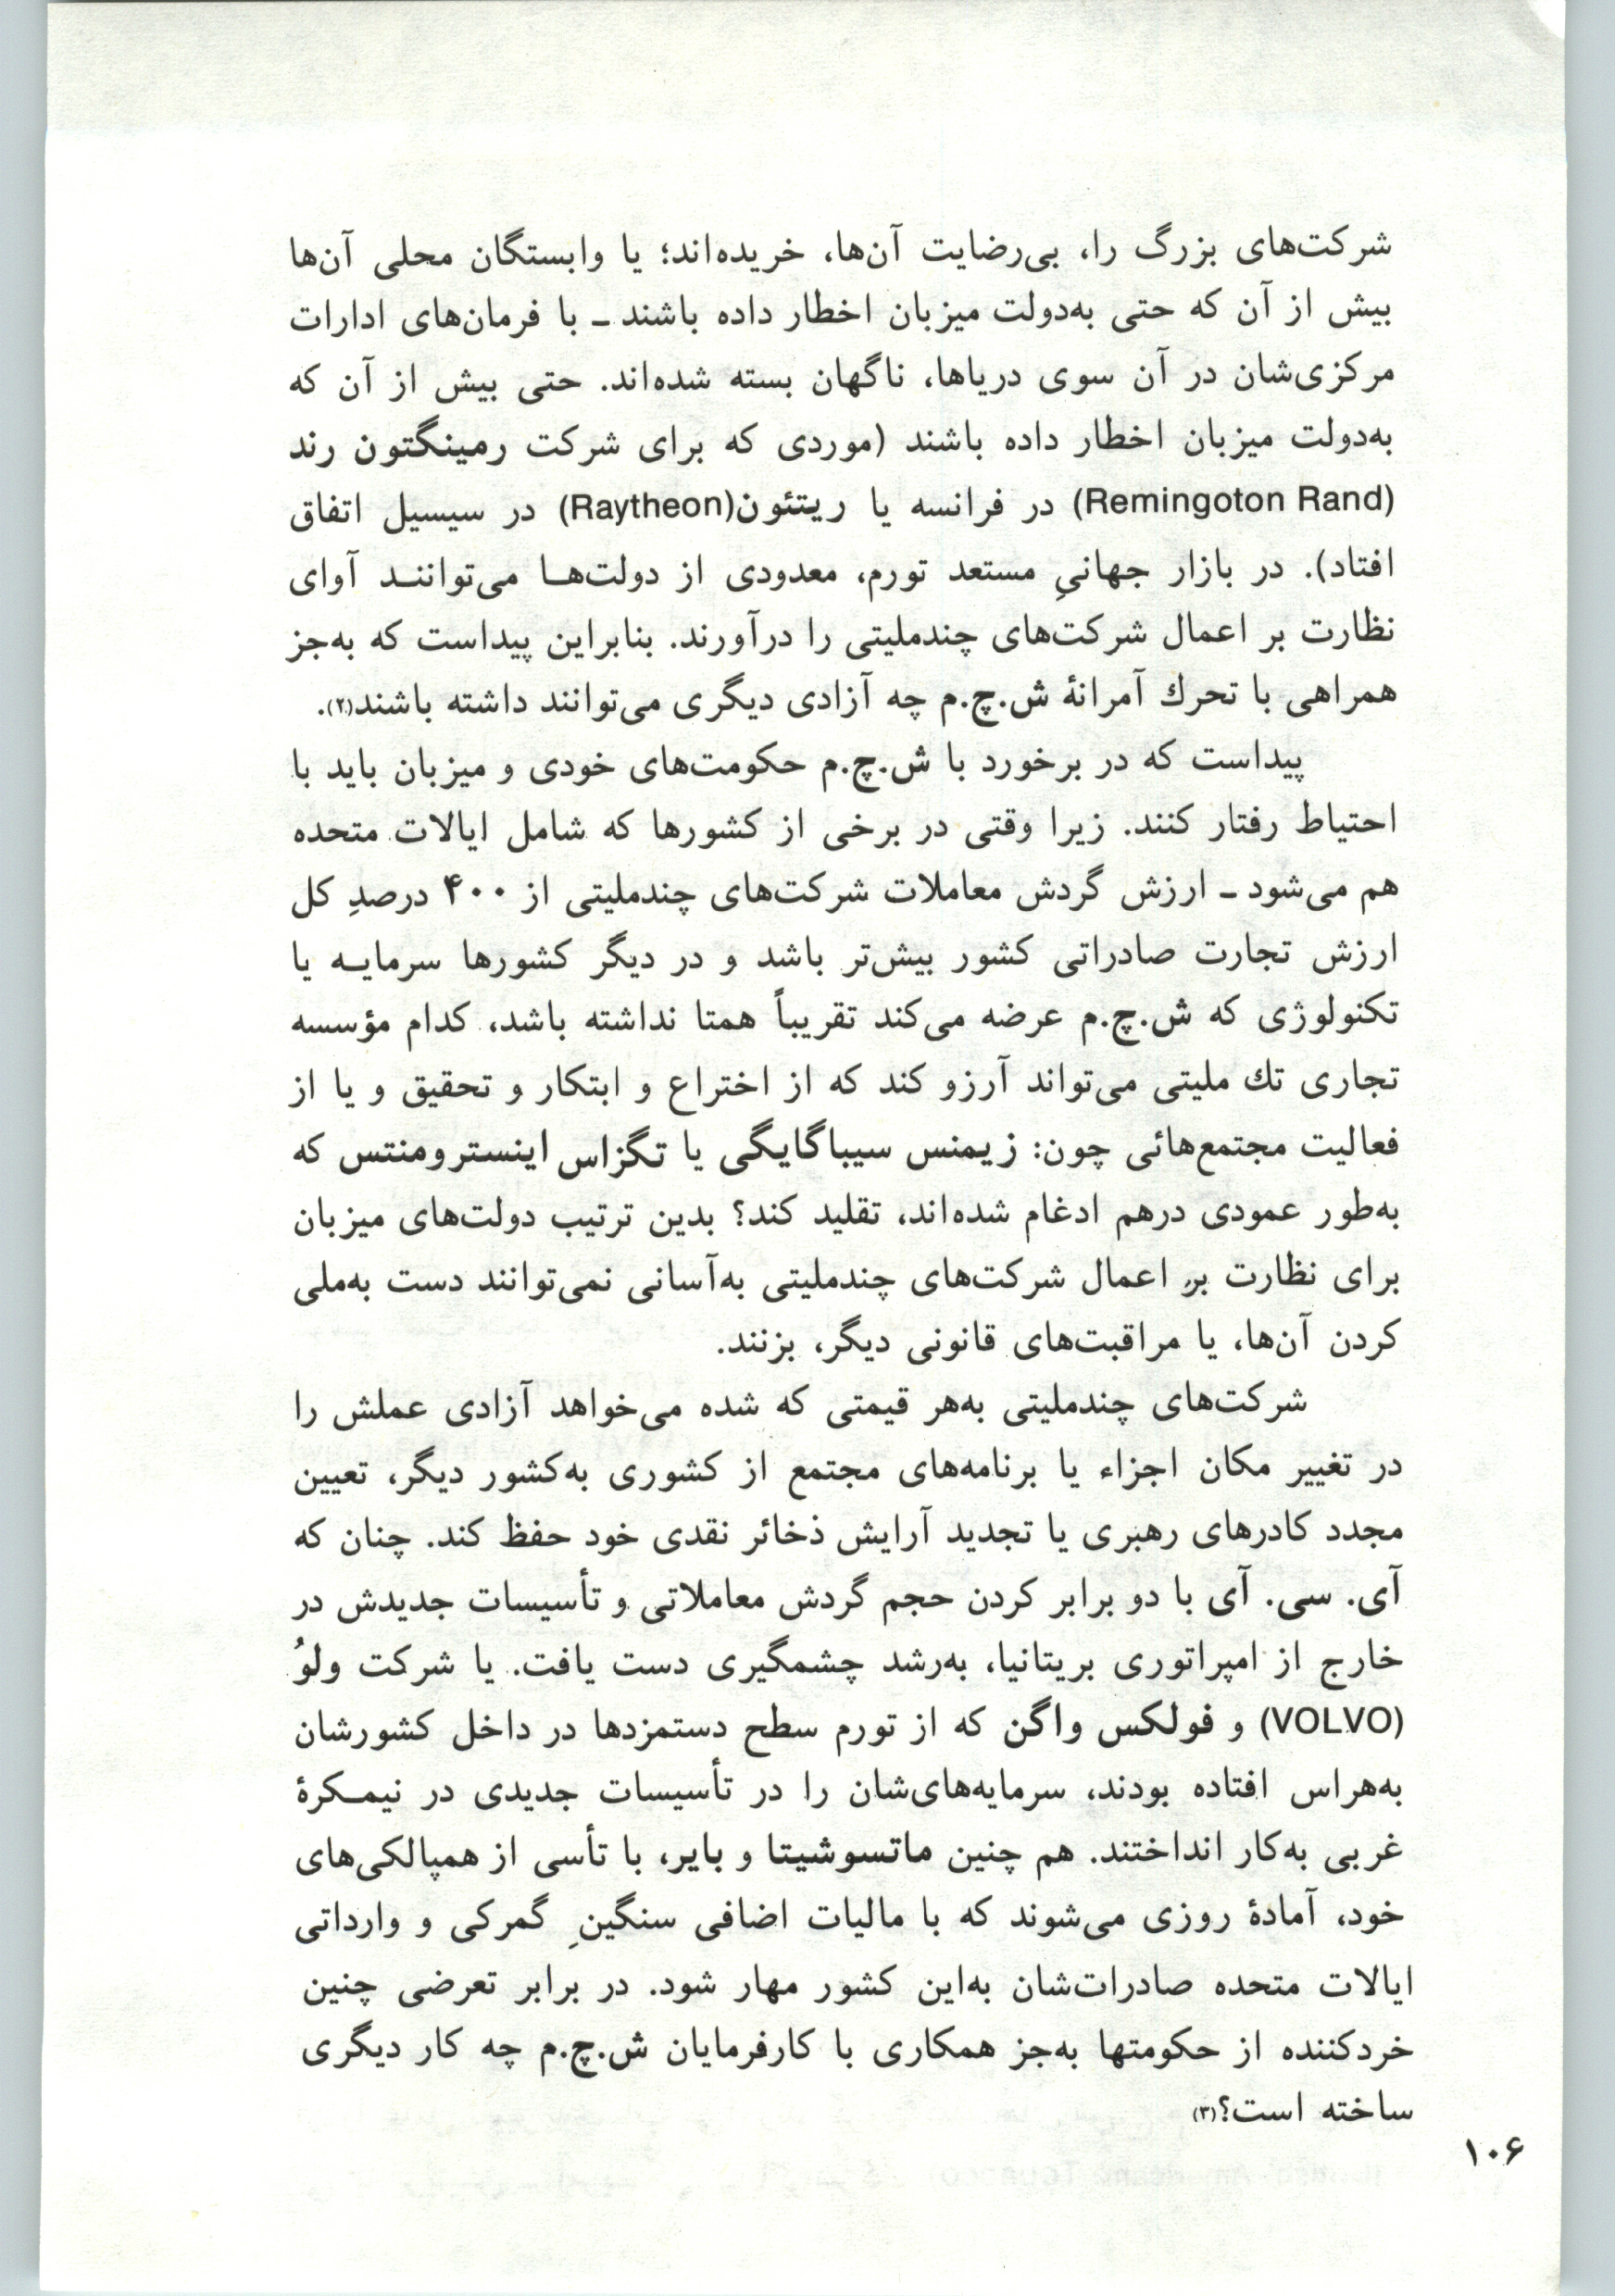 شرکت‌های بزرگ را، بی‌رضایت آن‌ها، خریده‌اند؛ یا وابستگان محلی آن‌ها
بیش از آن که حتی به‌دولت میزبان اخطار داده باشند ـ با فرمان‌های ادارات
مرکزی‌شان در آن سوی دریاها، ناگهان بسته شده‌اند. حتی بیش از آن که
به‌دولت میزبان اخطار داده باشند (موردی که برای شرکت رمینگتون رند
(Remingoton Rand) در فرانسه یا ریتئون(Raytheon) در سیسیل اتفاق
افتاد). در بازار جهانیِ مستعد تورم، معدودی از دولت‌هـا می‌تواننـد آوای
نظارت بر اعمال شرکت‌های چندملیتی را درآورند. بنابراین پیداست که به‌جز
همراهی با تحرك آمرانهٔ ش.چ.م چه آزادی دیگری می‌توانند داشته باشند(۲).
پیداست که در برخورد با ش.چ.م حکومت‌های خودی و میزبان باید با
احتیاط رفتار کنند. زیرا وقتی در برخی از کشورها که شامل ایالات متحده
هم می‌شود ـ ارزش گردش معاملات شرکت‌های چندملیتی از ۴۰۰ درصدِ کل
ارزش تجارت صادراتی کشور بیش‌تر باشد و در دیگر کشورها سرمایـه یا
تکنولوژی که ش.چ.م عرضه می‌کند تقریباً همتا نداشته باشد، کدام مؤسسه
تجاری تك ملیتی می‌تواند آرزو کند که از اختراع و ابتکار و تحقیق و یا از
فعالیت مجتمع‌هائی چون: زیمنس سیباگایگی یا تگزاس اینسترومنتس که
به‌طور عمودی درهم ادغام شده‌اند، تقلید کند؟ بدین ترتیب دولت‌های میزبان
برای نظارت بر اعمال شرکت‌های چندملیتی به‌آسانی نمی‌توانند دست به‌ملی
کردن آن‌ها، یا مراقبت‌های قانونی دیگر، بزنند.
شرکت‌های چندملیتی به‌هر قیمتی که شده می‌خواهد آزادی عملش را
در تغییر مکان اجزاء یا برنامه‌های مجتمع از کشوری به‌کشور دیگر، تعیین
مجدد کادرهای رهبری یا تجدید آرایش ذخائر نقدی خود حفظ کند. چنان که
آی. سی. آی با دو برابر کردن حجم گردش معاملاتی و تأسیسات جدیدش در
خارج از امپراتوری بریتانیا، به‌رشد چشمگیری دست یافت. یا شرکت ولوُ
(VOLVO) و فولکس واگن که از تورم سطح دستمزدها در داخل کشورشان
به‌هراس افتاده بودند، سرمایه‌های‌شان را در تأسیسات جدیدی در نیمـکرهٔ
غربی به‌کار انداختند. هم چنین ماتسوشیتا و بایر، با تأسی از همپالکی‌های
خود، آمادهٔ روزی می‌شوند که با مالیات اضافی سنگینِ گمرکی و وارداتی
ایالات متحده صادرات‌شان به‌این کشور مهار شود. در برابر تعرضی چنین
خردکننده از حکومتها به‌جز همکاری با کارفرمایان ش.چ.م چه کار دیگری
ساخته است؟(۳)
۱۰۶